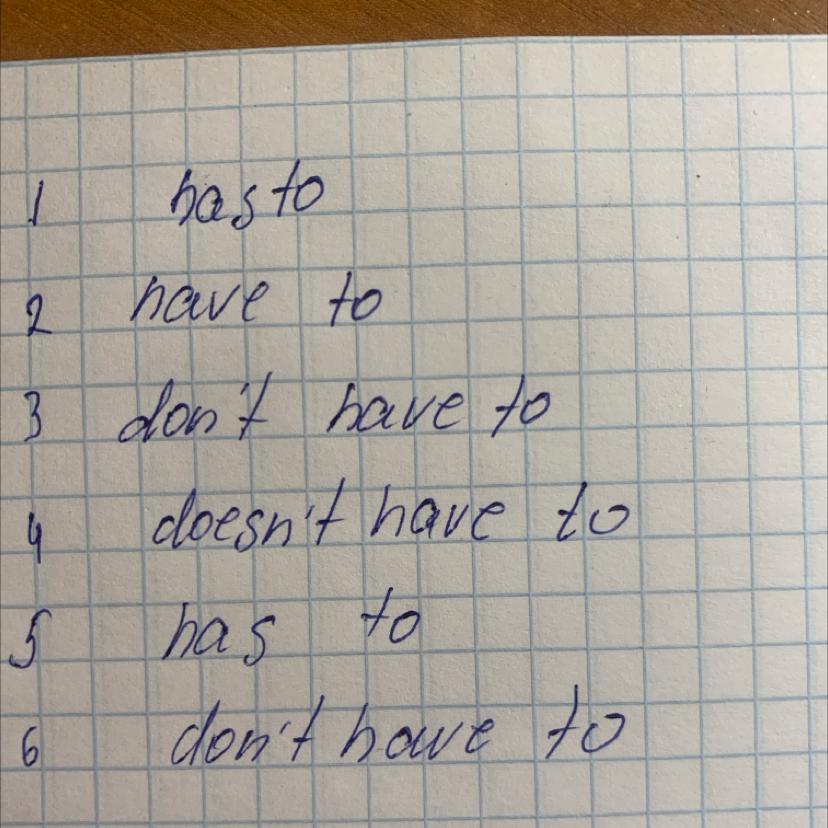 1 has to
2 have to
3 don't have to
4 doesn't have to
5 has to
6 don't have to